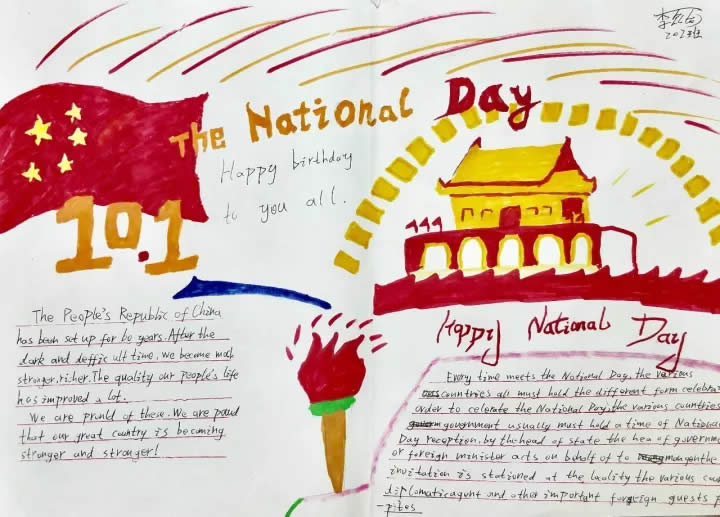 李
2023班
The National Day
Happy birthday
to you all.
10.1
The People's Republic of China
has been set up for 60 years. After the
dark and deffic ult time, we become much
stronger, richer. The quality our people's life
has improved a lot.
We are prould of these. We are poud
that our great country is becoming
stronger and stronger!
Happy National Day
Every time meets the National Day, the various
countries all must hold the different form celebra
order to celerate the National Pay, the various countries
government usually must hold a time of Nationa
Day reception. by the head of state the hea of governm
or foreign minister acts on behalf of to the
invitation is stationed at the laality the various coun
diplomaticagent and other important foreign guests p
-pites